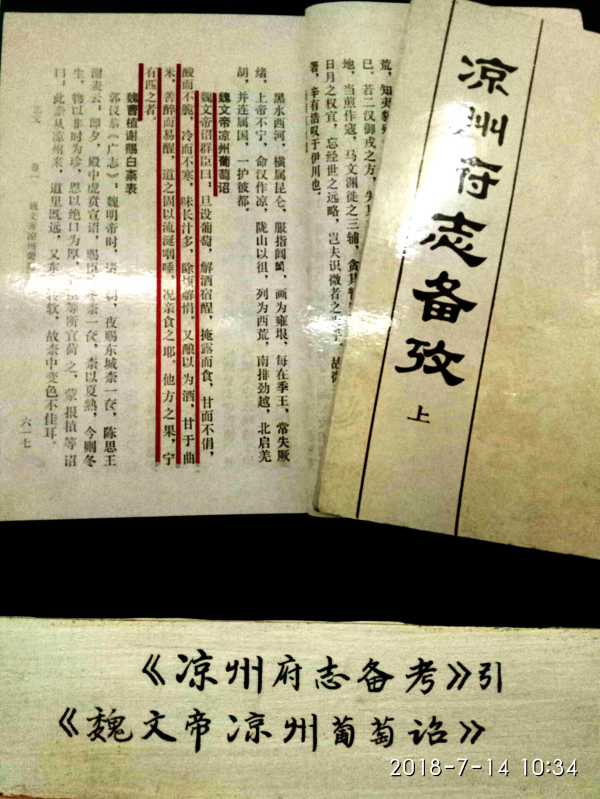 凉州府志备攷
上
荒，知夷貌
巳。若二汉御戎之方，失其
地，当煎作寇，马文渊徙之三辅，贪其
日月之权宜，忘经世之远略，岂夫识微者之
著，辛有浩叹于伊川也。
黑水西河，横属昆仑，服指阗，画为雍垠，每在季王，常失厥
绪，上帝不宁，命汉作凉，陇山以徂，列为西荒，南排劲越，北启羌
胡，并连属国，一护彼都。
魏文帝凉州葡萄诏
魏文帝诏群臣曰，旦设葡萄，解酒宿酲，掩露而食，甘而不悁，
酸而不脆，冷而不寒，味长汁多，除烦解悁。又酿以为酒，甘于曲
米，善醉而易醒，道之固以流涎咽唾，况亲食之耶。他方之果，宁
有匹之者。
魏曹植谢赐白柰表
郭汉恭《广志》，魏明帝时，诸朝，夜赐东城柰一奁，陈思王
谢表云，即夕，殿中虎贲宣诏，赐臣冬柰一奁，柰以夏熟，今则冬
生，物以非时为珍，恩以绝口为厚，等所宜荷之，蒙报植等诏
曰，此柰从凉州来，道里既远，又东转软，故柰中变色不佳耳。
卷一 魏文帝凉州葡
六一七
《凉州府志备考》引
《魏文帝凉州葡萄诏》
2018-7-14 10:34